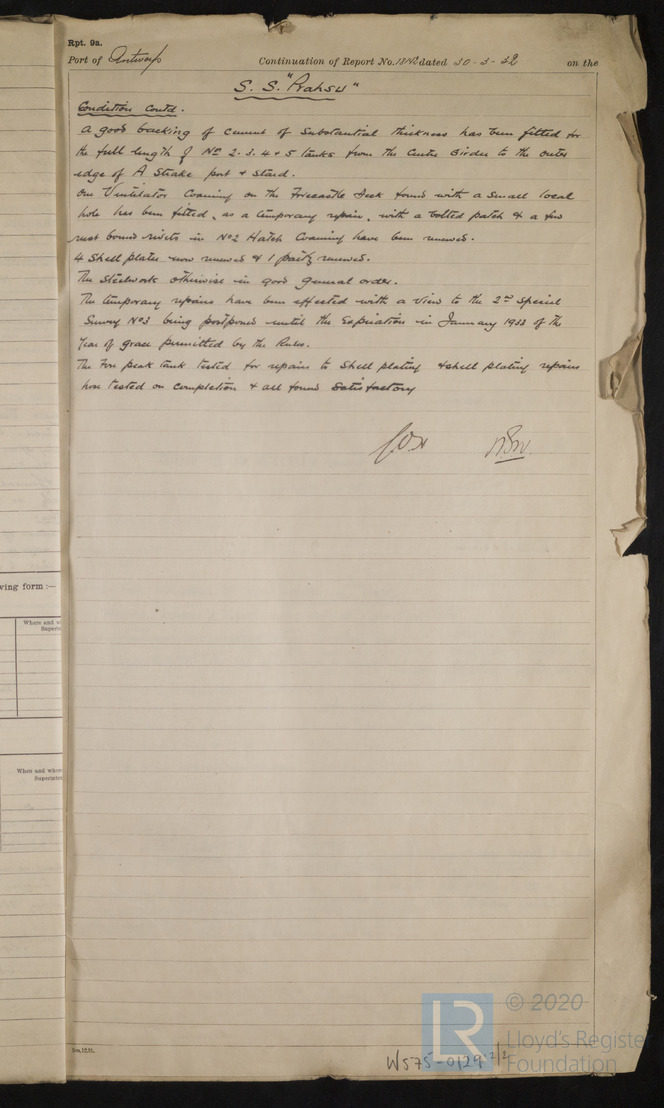 Rpt. 9a.
Port of Antwerp Continuation of Report No. dated 30-3-32 on the
S. S. "Prahsu"
Condition Contd.
A good backing of cement of Substantial thickness has been fitted for
the full length of No 2. 3. 4 & 5 tanks from the Centre Girder to the outer
edge of A Strake port & Starbd.
One Ventilator Coaming on the Forecastle Deck found with a small local
hole has been fitted, as a temporary repair, with a bolted patch & a few
rust bound rivets in No2 Hatch Coaming have been renewed.
4 Shell plates now renewed & 1 partly renewed.
The Steelwork otherwise in good general order.
The temporary repairs have been effected with a view to the 2nd Special
Survey No3 being postponed until the Expiration in January 1933 of the
Year of grace permitted by the Rules.
The Fore peak tank tested for repairs to Shell plating & shell plating repairs
hose tested on completion & all found Satisfactory
ving form :—
Where and w
Superin
When and wher
Superinten
W575-0129 2/2
LR
© 2020
Lloyd's Register
Foundation